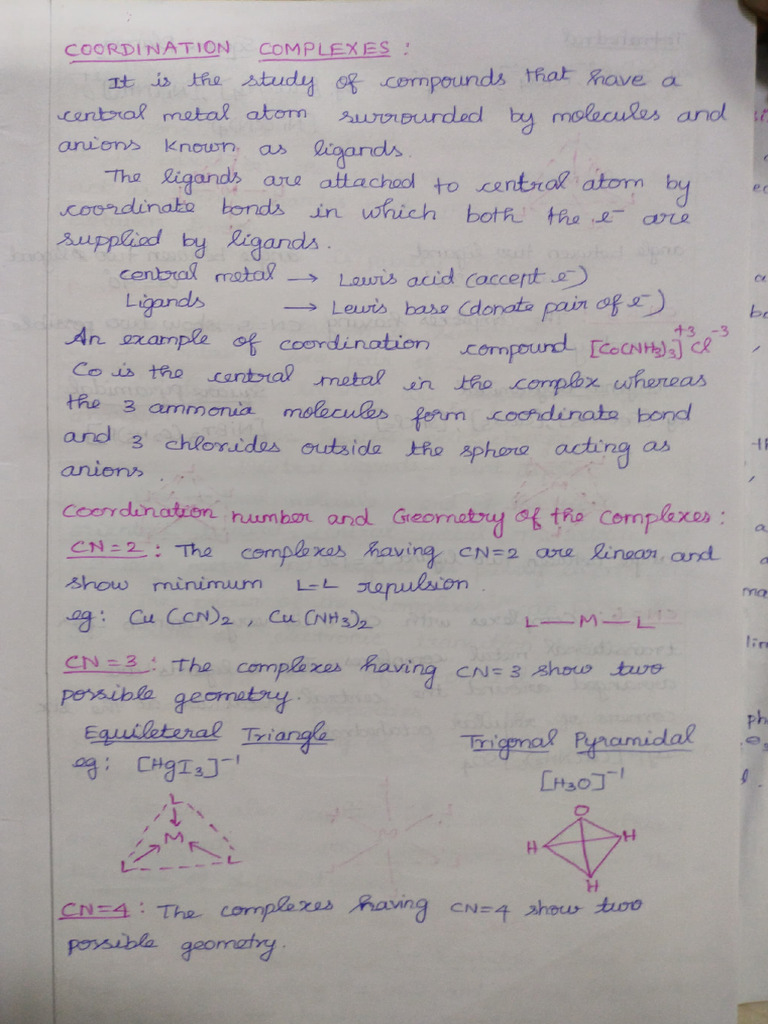 COORDINATION COMPLEXES :
It is the study of compounds that have a
central metal atom surrounded by molecules and
anions known as ligands.
The ligands are attached to central atom by
coordinate bonds in which both the e⁻ are
supplied by ligands.
central metal → Lewis acid (accept e⁻)
Ligands → Lewis base (donate pair of e⁻)
An example of coordination compound [Co(NH3)3]⁺³ Cl⁻³
Co is the central metal in the complex whereas
the 3 ammonia molecules form coordinate bond
and 3 chlorides outside the sphere acting as
anions.
Coordination number and Geometry of the Complexes :
CN=2 : The complexes having CN=2 are linear and
show minimum L-L repulsion.
eg: Cu(CN)2, Cu(NH3)2 L—M—L
CN=3 : The complexes having CN=3 show two
possible geometry.
Equileteral Triangle Trigonal Pyramidal
eg: [HgI3]⁻¹ [H3O]⁻¹
L O
M H H
L L H
CN=4 : The complexes having CN=4 show two
possible geometry.